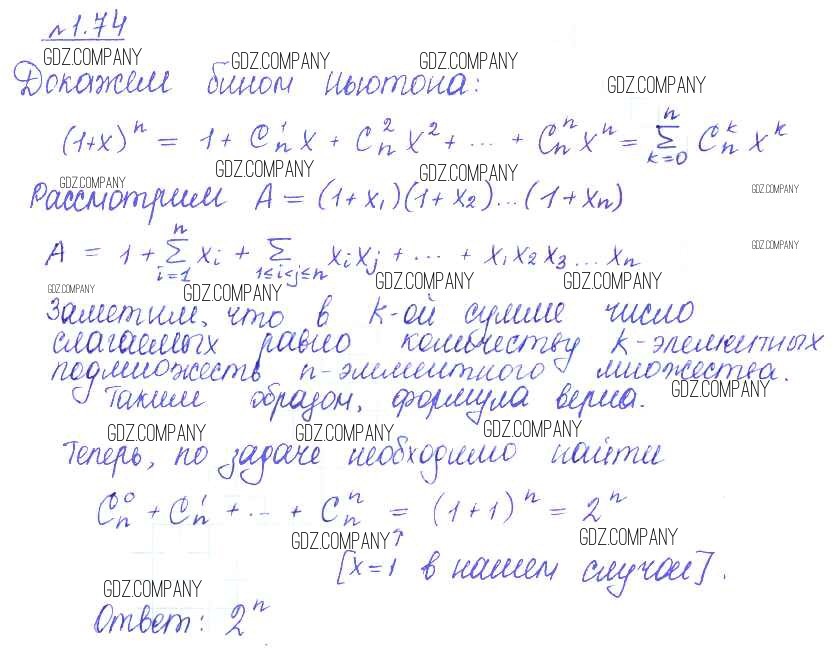 №1.74
GDZ.COMPANY
GDZ.COMPANY GDZ.COMPANY
Докажем бином ньютона:
GDZ.COMPANY
(1+x)^n = 1 + C_n^1 x + C_n^2 x^2 + ... + C_n^n x^n = ∑_{k=0}^n C_n^k x^k
GDZ.COMPANY GDZ.COMPANY
GDZ.COMPANY GDZ.COMPANY
Рассмотрим A = (1+x_1)(1+x_2)...(1+x_n)
A = 1 + ∑_{i=1}^n x_i + ∑_{1≤i<j≤n} x_i x_j + ... + x_1 x_2 x_3 ... x_n
GDZ.COMPANY
GDZ.COMPANY GDZ.COMPANY GDZ.COMPANY GDZ.COMPANY
Заметим, что в k-ой сумме число
слагаемых равно количеству k-элементных
подмножеств n-элементного множества.
GDZ.COMPANY
Таким образом, формула верна.
GDZ.COMPANY GDZ.COMPANY GDZ.COMPANY
Теперь, по задаче необходимо найти
C_n^0 + C_n^1 + ... + C_n^n = (1+1)^n = 2^n
GDZ.COMPANY↑ GDZ.COMPANY
[x=1 в нашем случае].
GDZ.COMPANY
Ответ: 2^n